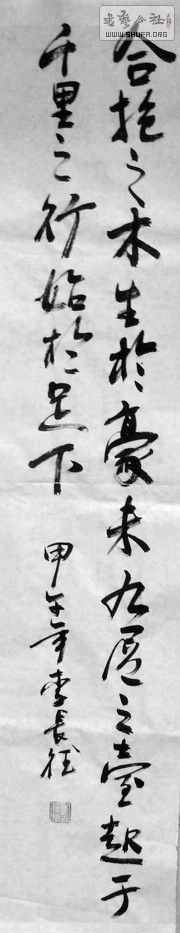 合抱之木生於豪末九层之臺起于
千里之行始於足下
甲午年李長征
书艺公社
WWW.SHUFA.ORG